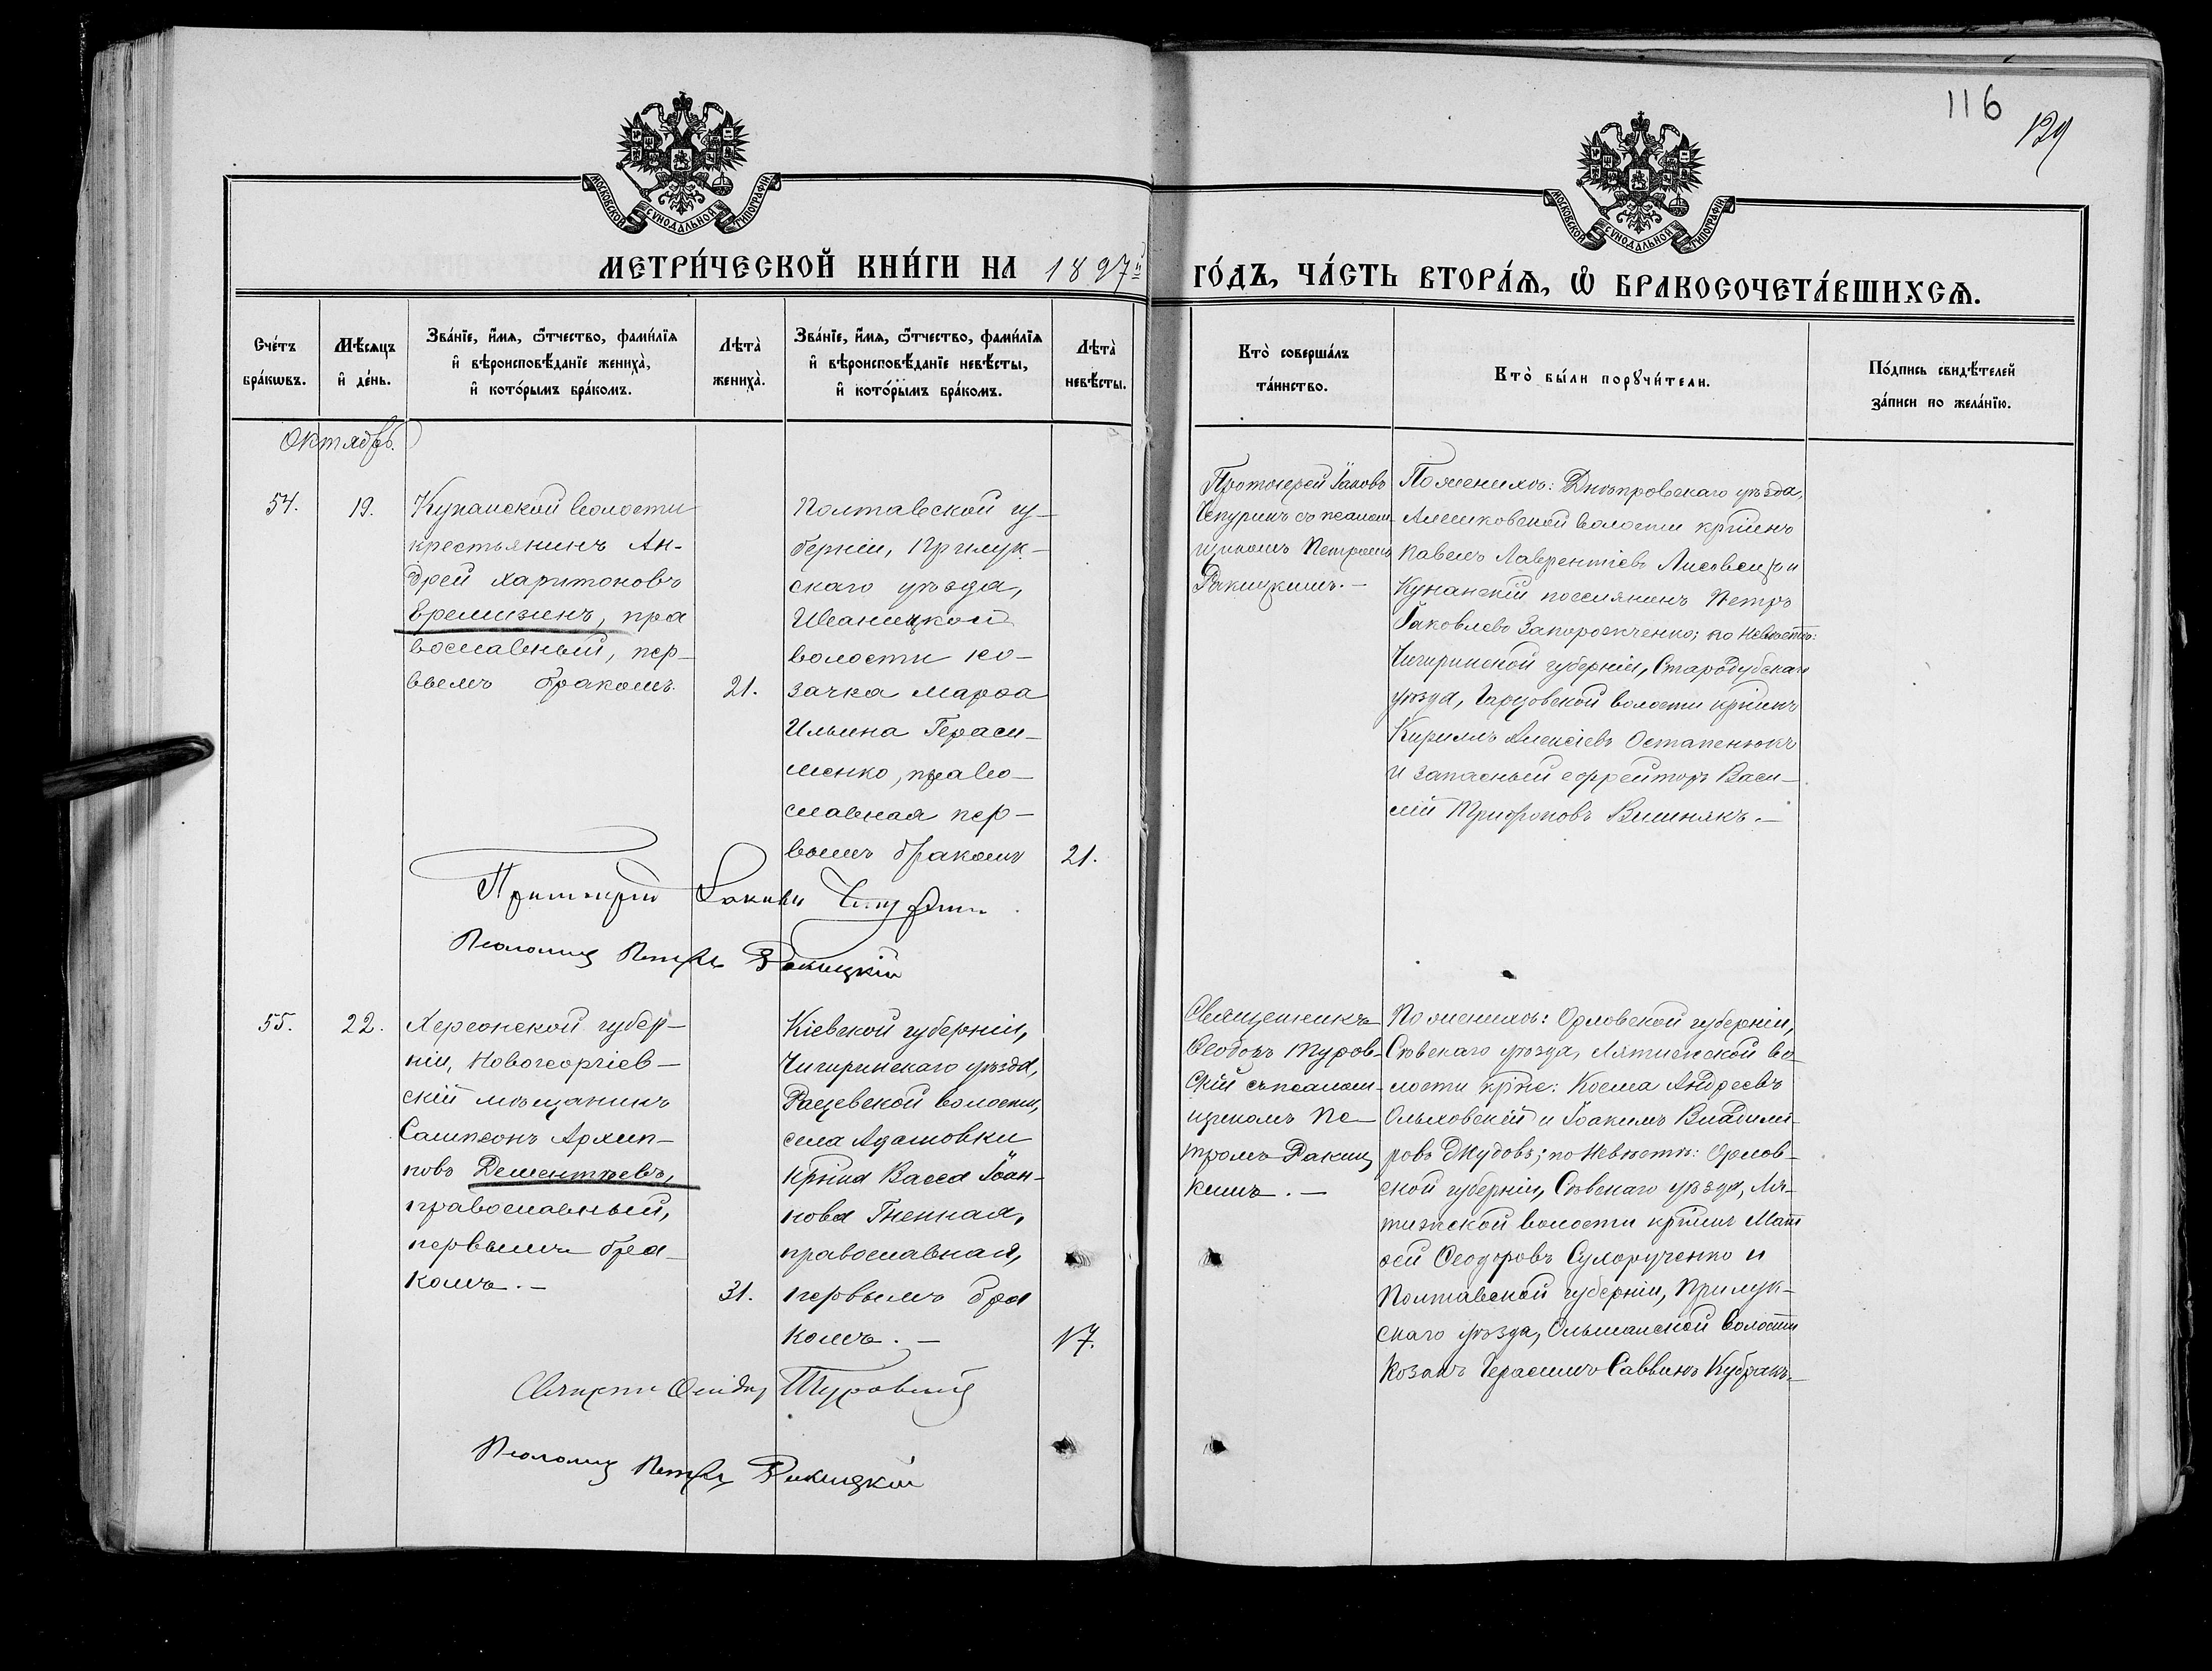 116
129
МОСКОВСКОЙ СѴНОДАЛЬНОЙ ТИПОГРАФІИ
МОСКОВСКОЙ СѴНОДАЛЬНОЙ ТИПОГРАФІИ
МЕТРИ́ЧЕСКОЙ КНИ́ГИ НА 1897й ГО́ДЪ, ЧА́СТЬ ВТОРА́Ѧ, Ѽ БРАКОСОЧЕТА́ВШИХСѦ.
Сче́тъ бра́кѡвъ.
Мѣ́сѧцъ и҆ де́нь.
Зва́нїе, и҆́мѧ, ѻ҆́тчество, фами́лїѧ и҆ вѣроисповѣ́данїе жениха̀, и҆ кото́рымъ бра́комъ.
Лѣта̀ жениха̀.
Зва́нїе, и҆́мѧ, ѻ҆́тчество, фами́лїѧ и҆ вѣроисповѣ́данїе невѣ́сты, и҆ кото́рымъ бра́комъ.
Лѣта̀ невѣ́сты.
Кто̀ соверша́лъ та́инство.
Кто̀ бы́ли порꙋчи́тели.
По́дпись свидѣ́телей за́писи по жела́нїю.
Октябрь.
54.
19.
крестьянинъ Ан-
дрей Харитоновъ
Еремизинъ, пра
вославный, пер-
вымъ бракомъ.
21.
Полтавской гу-
берніи, Прилук-
скаго уѣзда,
Иваницкой
волости ко-
зачка Марѳа
Ильина Гераси-
менко, право-
славная пер-
вымъ бракомъ
21.
Протоіерей Іаковъ
Чепуринъ съ псалом-
щикомъ Петромъ
Ракицкимъ.-
По женихѣ: Днѣпровскаго уѣзда,
Алешковской волости крѣинъ
Павелъ Лаврентіевъ и
поселянинъ Петръ
Іаковлевъ Запорожченко; по невѣстѣ:
губерніи, Стародубскаго
уѣзда, волости крѣинъ
Кириллъ Алексіевъ Остапенюкъ
и запасный ефрейторъ Васи-
лій Трифоновъ Вишнякъ.-
Протоіерей Іаковъ Чепуринъ.
Псаломщ Петръ Ракицкій
55.
22.
Херсонской губер-
ніи, Новогеоргіев-
скій мѣщанинъ
Сампсонъ Архип-
повъ Дементьевъ,
православный,
первымъ бра-
комъ.-
31.
Кіевской губерніи,
Чигиринскаго уѣзда,
Рацевской волости,
села Адамовки
крѣнка Васса Іоан-
нова Гненная,
православная,
первымъ бра
комъ.-
17.
Священникъ
Ѳеодоръ Туров-
скій съ псалом-
щикомъ Пе-
тромъ Ракиц
кимъ.-
По женихѣ: Орловской губерніи,
Сѣвскаго уѣзда, во-
лости крѣне: Косма Андреевъ
Ольховскій и Іоакимъ Владими-
ровъ по невѣстѣ: Орлов-
ской губерніи, Сѣвскаго уѣзда,
волости крѣинъ Мат
ѳей Ѳеодоровъ Сухорученко и
Полтавской губерніи, Прилук-
скаго уѣзда, Ольшанской волости
козакъ Герасимъ Саввинъ Кубракъ.-
Священн Ѳеодоръ Туровскій
Псаломщ Петръ Ракицкій